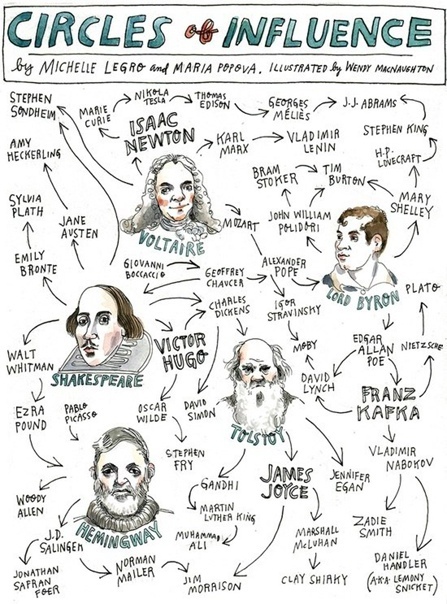 CIRCLES of INFLUENCE
by MICHELLE LEGRO and MARIA POPOVA. ILLUSTRATED by WENDY MACNAUGHTON
STEPHEN
SONDHEIM
MARIE
CURIE
NIKOLA
TESLA
THOMAS
EDISON
GEORGES
MÉLIÈS
J.J. ABRAMS
ISAAC
NEWTON
KARL
MARX
VLADIMIR
LENIN
STEPHEN KING
AMY
HECKERLING
H.P.
LOVECRAFT
BRAM
STOKER
TIM
BURTON
SYLVIA
PLATH
JANE
AUSTEN
VOLTAIRE
MOZART
JOHN WILLIAM
POLIDORI
MARY
SHELLEY
EMILY
BRONTE
GIOVANNI
BOCCACCIO
GEOFFREY
CHAUCER
ALEXANDER
POPE
LORD BYRON
PLATO
CHARLES
DICKENS
IGOR
STRAVINSKY
WALT
WHITMAN
SHAKESPEARE
VICTOR
HUGO
MOBY
EDGAR
ALLAN
POE
NIETZSCHE
DAVID
LYNCH
FRANZ
KAFKA
EZRA
POUND
PABLO
PICASSO
OSCAR
WILDE
DAVID
SIMON
TOLSTOY
STEPHEN
FRY
VLADIMIR
NABOKOV
WOODY
ALLEN
HEMINGWAY
GANDHI
JAMES
JOYCE
JENNIFER
EGAN
MARTIN
LUTHER KING
ZADIE
SMITH
J.D.
SALINGER
MUHAMMAD
ALI
MARSHALL
MCLUHAN
DANIEL
HANDLER
(A.K.A. LEMONY
SNICKET)
JONATHAN
SAFRAN
FOER
NORMAN
MAILER
JIM
MORRISON
CLAY SHIRKY